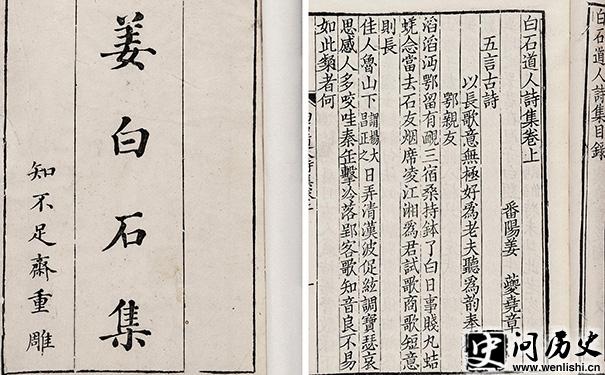 姜白石集
知不足齋重雕
白石道人詩集目錄
白石道人詩集卷上
番陽姜 夔堯章
五言古詩
以長歌意無極好為老夫聽為韵奉
鄂親友
滔滔沔鄂留有靦三宿桑持鉢了白日事賤丸蛣
蜣念當去石友烟席凌江湘為君試歌商歌短意
則長
佳人魯山下謂楊大昌正之日弄清漢波促絃調寶瑟哀
思感人多咬哇秦缶擊冷落郢客歌知音良不易
如此者何
史问历史
www.wenlishi.cn